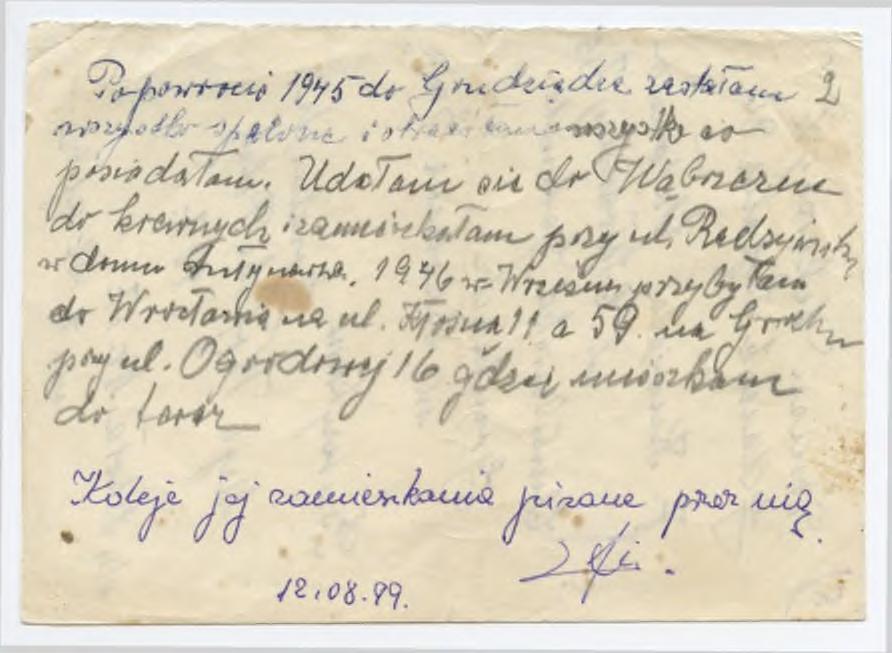 Popowrocie 1945 do Grudziądza zastałam 2
wszystko spalone i wszystko co
posiadałam. Udałam sie do Wąbrzezna
do krewnych i zamieszkałam przy ul. Radzyńskiej
w domu 1946 w Wrześniu przybyłam
do Wrocławia na ul. Kłosna 11 a 59. na
przy ul. Ogrodowej 16 gdzie mieszkam
do teraz
Koleje jej zamieszkania pisane przez nią.
12.08.99.